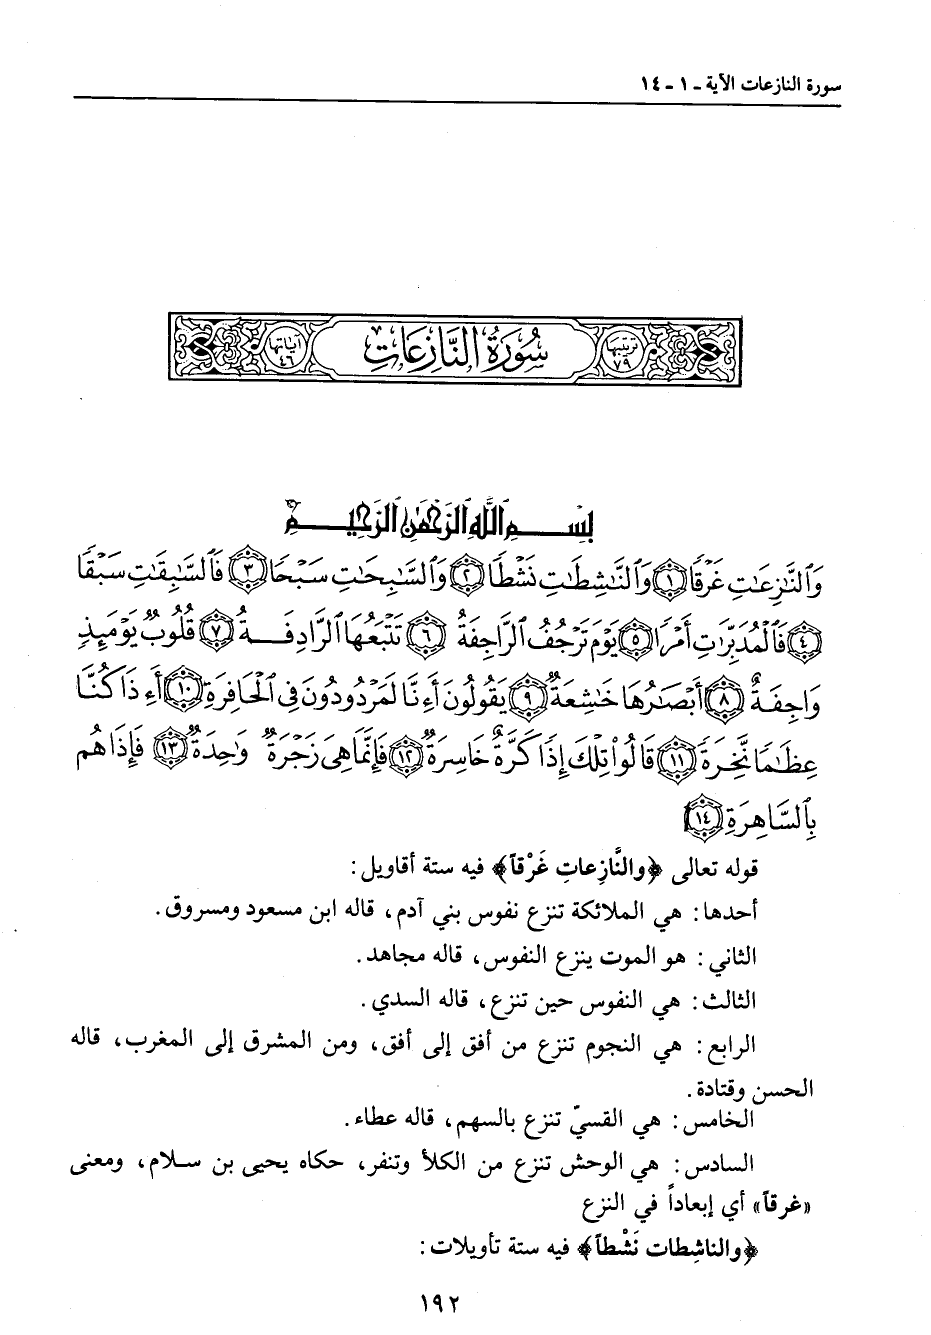 سورة النازعات الآية ـ ١ - ١٤
ترتيبها ٧٩ سُورَةُ النَّازِعَاتِ آياتها ٤٦
بِسْمِ اللَّهِ الرَّحْمَٰنِ الرَّحِيمِ
وَالنَّازِعَاتِ غَرْقًا ﴿١﴾ وَالنَّاشِطَاتِ نَشْطًا ﴿٢﴾ وَالسَّابِحَاتِ سَبْحًا ﴿٣﴾ فَالسَّابِقَاتِ سَبْقًا
﴿٤﴾ فَالْمُدَبِّرَاتِ أَمْرًا ﴿٥﴾ يَوْمَ تَرْجُفُ الرَّاجِفَةُ ﴿٦﴾ تَتْبَعُهَا الرَّادِفَةُ ﴿٧﴾ قُلُوبٌ يَوْمَئِذٍ
وَاجِفَةٌ ﴿٨﴾ أَبْصَارُهَا خَاشِعَةٌ ﴿٩﴾ يَقُولُونَ أَءِنَّا لَمَرْدُودُونَ فِي الْحَافِرَةِ ﴿١٠﴾ أَءِذَا كُنَّا
عِظَامًا نَّخِرَةً ﴿١١﴾ قَالُوا تِلْكَ إِذًا كَرَّةٌ خَاسِرَةٌ ﴿١٢﴾ فَإِنَّمَا هِيَ زَجْرَةٌ وَاحِدَةٌ ﴿١٣﴾ فَإِذَا هُم
بِالسَّاهِرَةِ ﴿١٤﴾
قوله تعالى ﴿والنَّازِعاتِ غَرْقاً﴾ فيه ستة أقاويل:
أحدها: هي الملائكة تنزع نفوس بني آدم، قاله ابن مسعود ومسروق.
الثاني: هو الموت ينزع النفوس، قاله مجاهد.
الثالث: هي النفوس حين تنزع، قاله السدي.
الرابع: هي النجوم تنزع من أفق إلى أفق، ومن المشرق إلى المغرب، قاله
الحسن وقتادة.
الخامس: هي القسيّ تنزع بالسهم، قاله عطاء.
السادس: هي الوحش تنزع من الكلأ وتنفر، حكاه يحيى بن سلام، ومعنى
«غرقاً» أي إبعاداً في النزع
﴿والناشِطات نَشْطاً﴾ فيه ستة تأويلات:
١٩٢